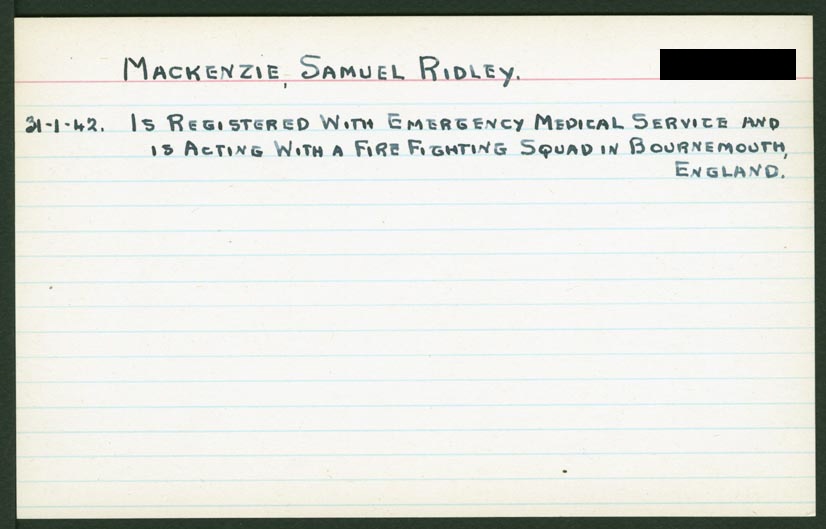 Mackenzie, Samuel Ridley.
31-1-42. Is Registered With Emergency Medical Service and
is Acting With a Fire Fighting Squad in Bournemouth,
England.